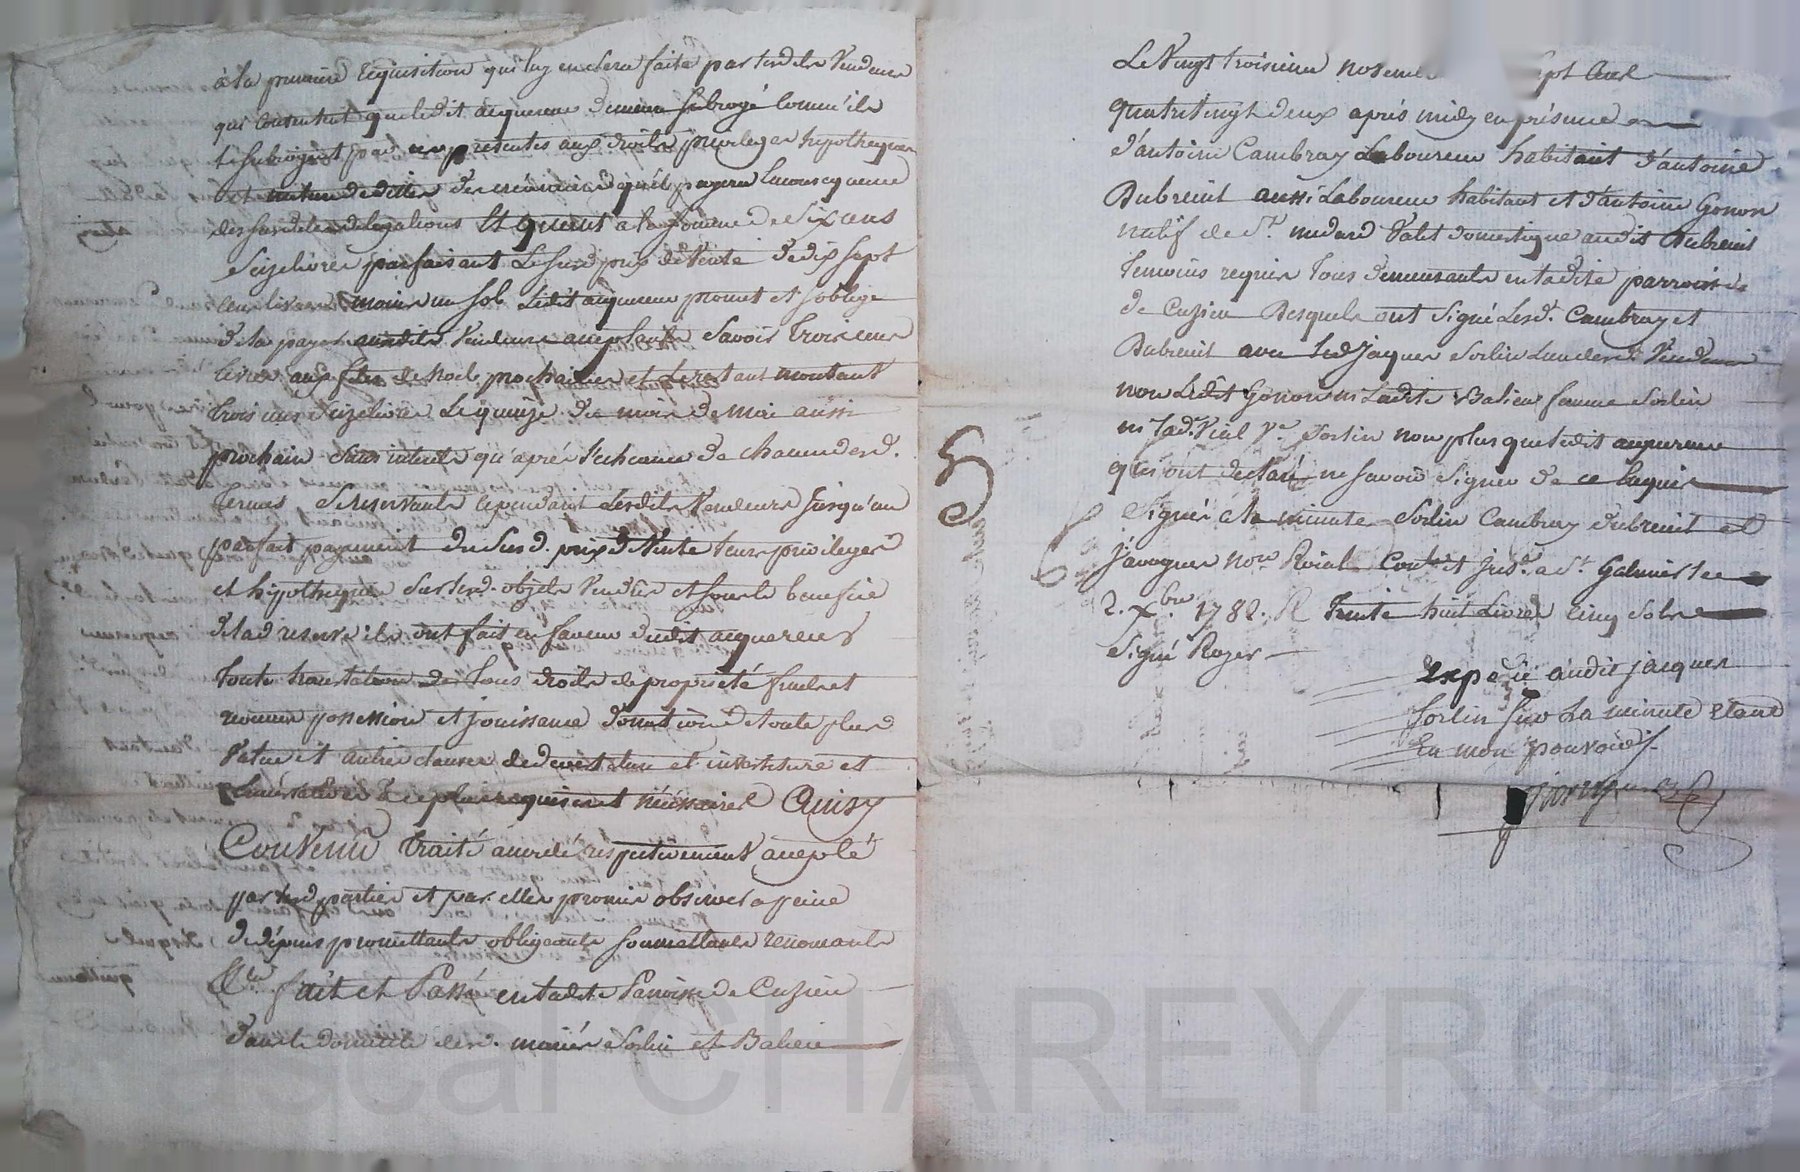 à la premiere requisition qui luy en sera faite par lesdits Vendeurs
qui consentent que ledit acquereur demeure subrogé comm'ils
le subrogent par ces presentes aux droits privileges hypotheques
et nature de dettes des creanciers qu'il payera en consequence
des susdittes delegations Et quant a la somme de six cens
seize livres parfaisant le susd. prix de Vente de dix sept
cens livres moins un sol ledit acquereur promet et s'oblige
de la payer auxdits Vendeurs acceptants savoir trois cens
livres aux fetes de Noel prochaines et le restant montant
trois cens seize livres le quinze du mois de mai aussi
prochain sans interets qu'après l'echeance de chacun desd.
termes se reservants cependant lesdits Vendeurs jusqu'au
parfait payement du susd. prix de Vente leurs privileges
et hypotheques sur lesd. objets vendus et sous le benefice
de lad. reserve ils ont fait en faveur dudit acquereur
toute translation de tous droits de propriété fruits et
revenus possession et jouissance donation de toute plus
Value et autres clauses de devestiture et investiture et
requises et nécessaires Ainsy
Convenu traité accordé respectivement accepté
par lesd parties et par elles promis observer a peine
de dépens promettants obligeants soumettants renonçants
&c. fait et Passé en ladite Paroisse de Cuzieu
dans le domicile desd. mariés Sorlin et Balieu
Le Vingt troisieme novem sept Cent
quatre vingt deux après midy en présence
d'antoine Cambray Laboureur habitant d'antoine
Dubreuil aussi Laboureur habitant et d'antoine Gonon
natif de St. medard Valet domestique audit Dubreuil
temoins requis tous demeurants en ladite parroisse
de Cuzieu Desquels ont signé Lesd. Cambray et
Dubreuil avec led Jaques Sorlin l'un desd. Vendeurs
non Ledit Gonon ni Ladite Balieu femme Sorlin
ni lad. Vial Ve. Sorlin non plus que ledit acquereur
qui ont declaré ne savoir signer de ce enquis
Signé a la minute Sorlin Cambray dubreuil et
javogues nore Roial Conlé à St. Galmier le
2. Xbre 1782. R trente huit Livres cinq sols
Signé Roger
expedié audit jacques
Sorlin sur La minute etant
En mon pouvoir
Pascal CHAREYRON